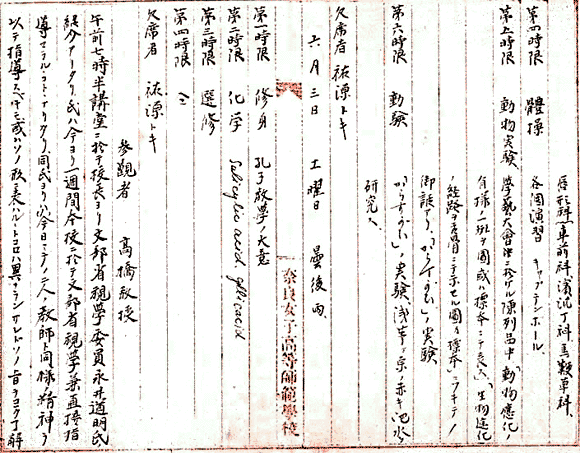 唇形科、車前科、濱沢丁科、馬類草科、
第四時限 體操 各個演習 キャプテンボール
第五時限 動物実験 學藝大會ニ於ケル陳列品中「動物應化ノ
有様ノ一班ヲ図或ハ標本ニテ表ハシ」、「生物進化
ノ経路ヲ系図ニテ示セシ図ト標本」ニツキテノ
御話アリ、「からすがひ」ノ実験
第六時限 動験 「からすがひ」ノ実験、浅草ノ赤キ池水
研究、
欠席者 祐源トキ
六月三日 土曜日 曇後雨、
第一時限 修身 孔子教學ノ大意
第二時限 化学 Salicylic acid gallic acid
第三時限 選修
第四時限 〃
欠席者 祐源トキ
参觀者 高橋教授
午前七時半講堂ニ於テ校長ヨリ文部省視學委員永井道明氏
紹介アータリ氏ハ今ヨリ一週間本校ニ於テ文部省視學兼直接指
導セラルヽコトトナリタリ同氏ヨリハ今日マデノ二人ノ教師ト同様ノ精神ヲ
以テ指導スベキモ或ハソノ改表ハルヽト品ハ異ナランサレドソノ旨ヲヨク了解
奈良女子高等師範學校